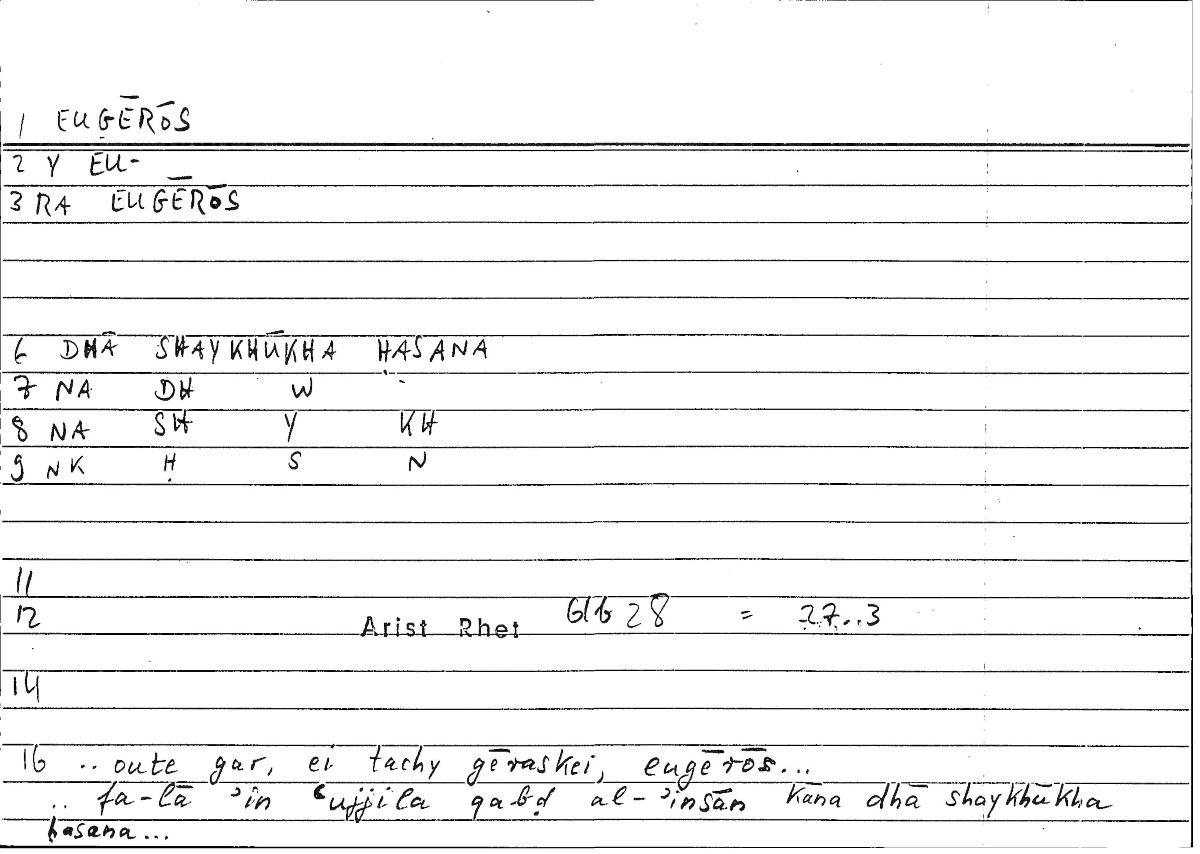 1 EUGĒRŌS
2 Y EU-
3 RA EUGĒRŌS
6 DHĀ SHAYKHŪKHA ḤASANA
7 NA DH W
8 NA SH Y KH
9 NK Ḥ S N
11
12 Arist Rhet 61b28 = 27..3
14
16 ..oute gar, ei tachy gēraskei, eugērōs...
.. fa-lā ʾin ʿujjila qabḍ al-ʾinsān kāna dhā shaykhūkha
ḥasana...